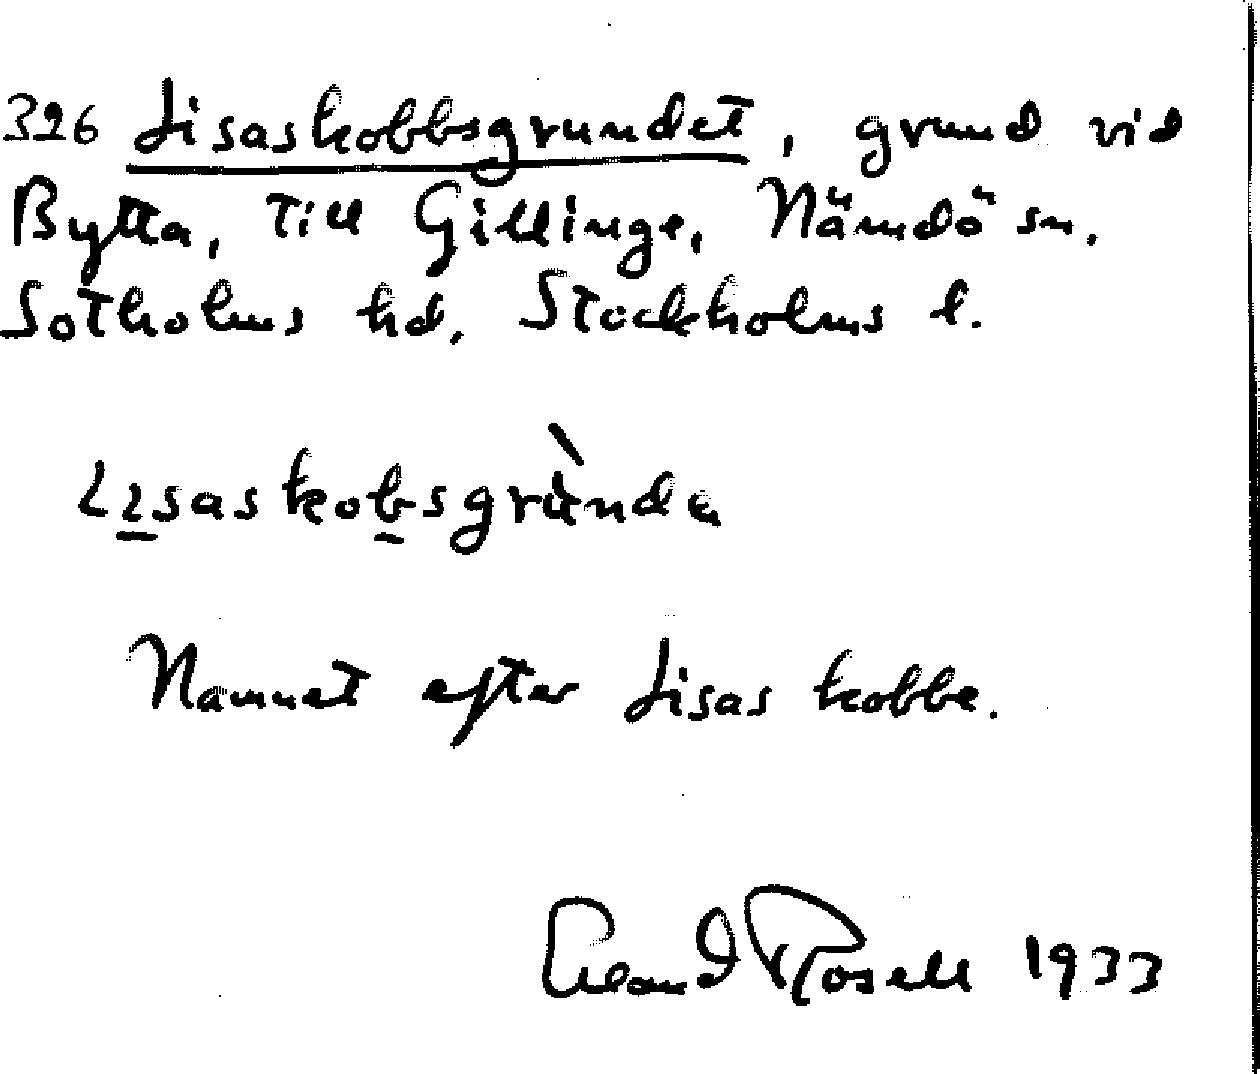 326 Lisaskobbsgrundet, grund vid
Bytta, till Gillinge, Nämdö sn.
Sotholms hd, Stockholms l.
Namnet efter Lisas kobbe.
Erland Rosell 1933